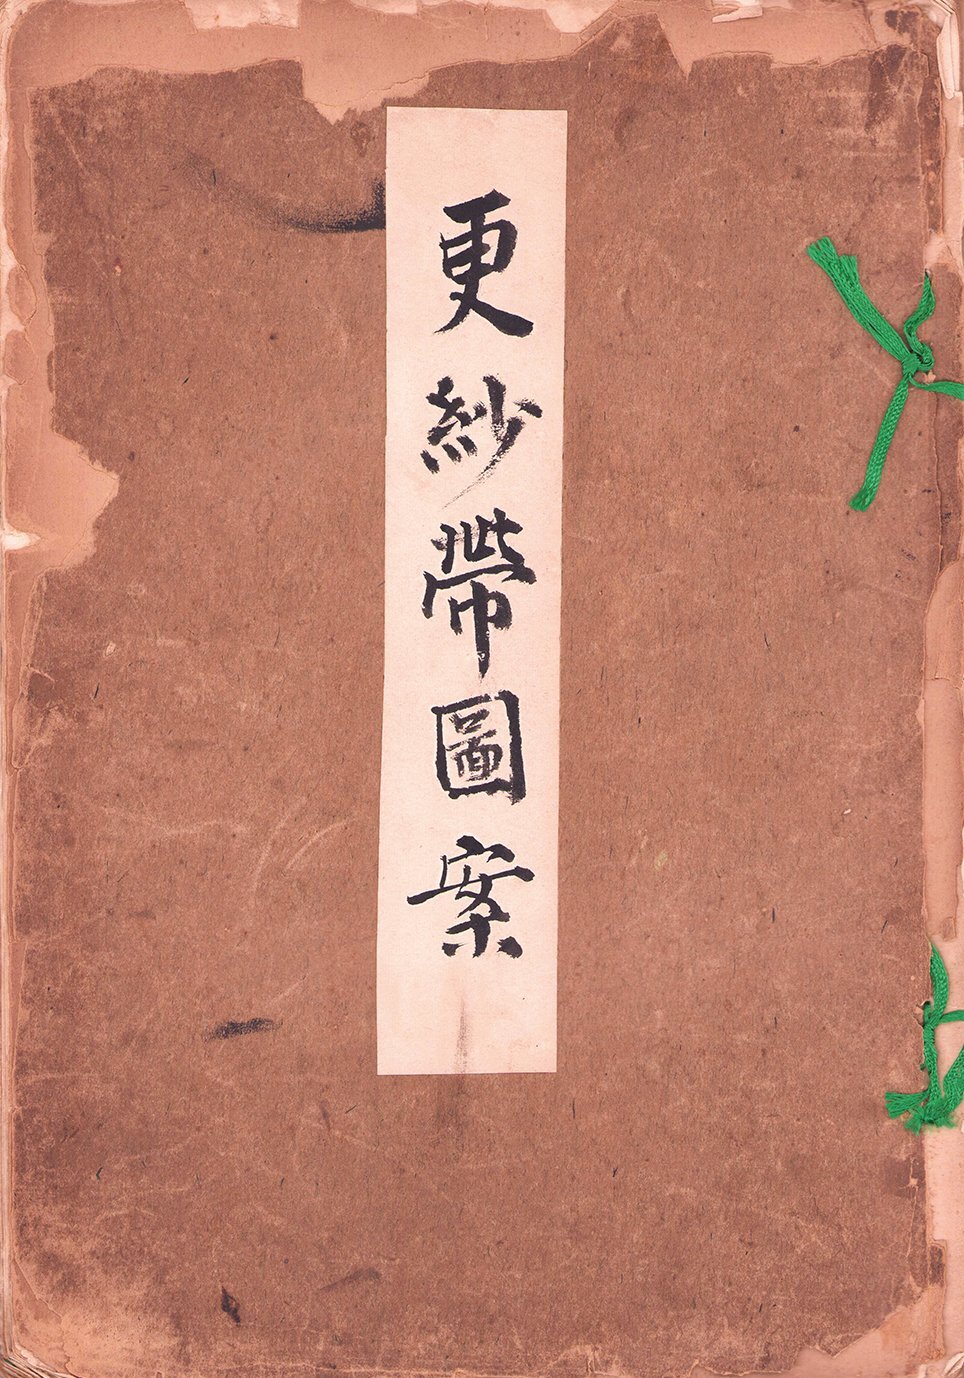 更紗帶圖案